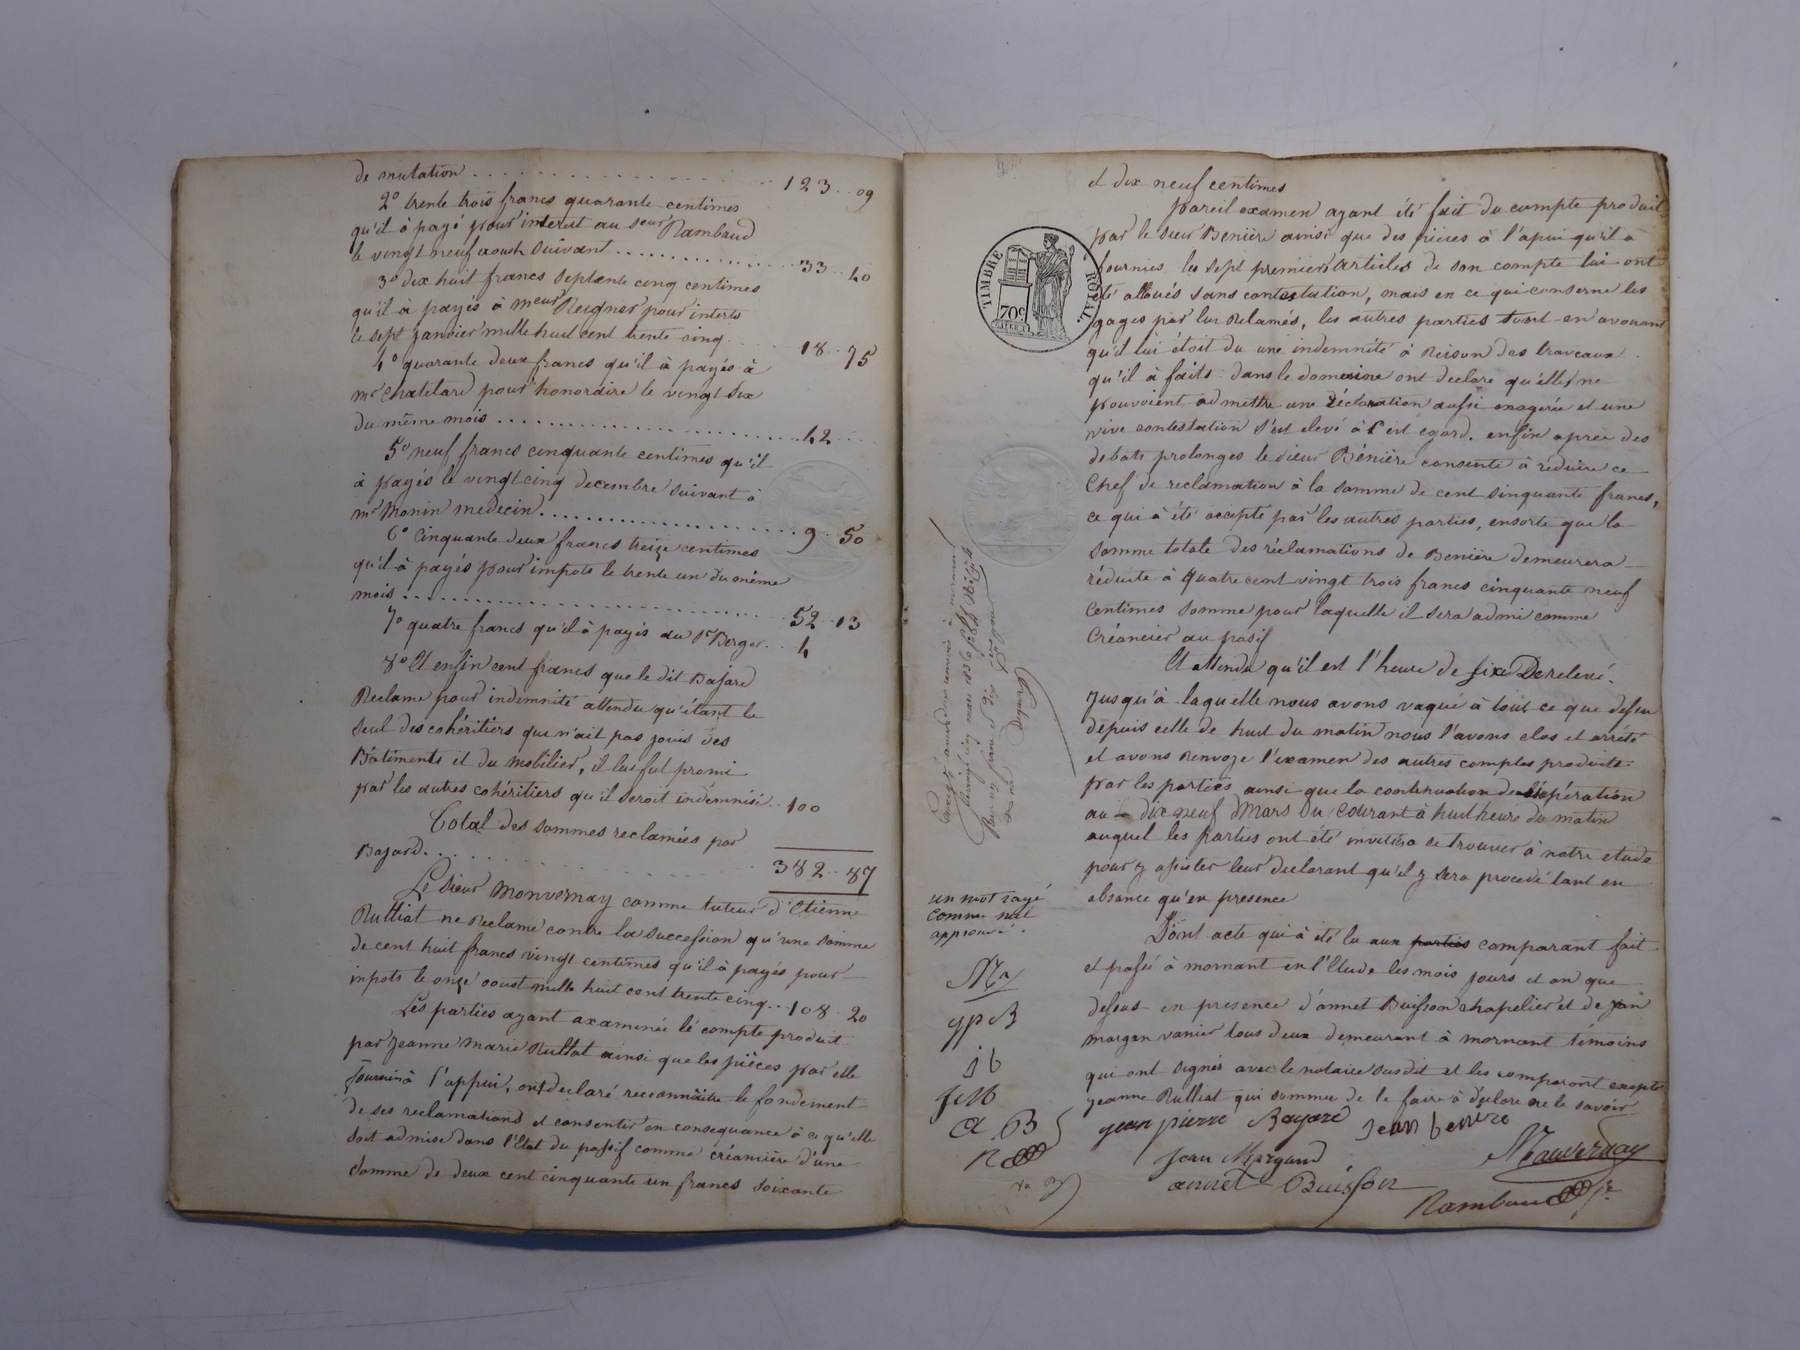 de mutation . . . . . . . . . . . . . . . 123 . . 09
2° trente trois francs quarante centimes
qu'il à payé pour interet au sieur Rambaud
le vingt neuf aoush suivant . . . . . . . . . . . . 33 . . 40
3° dix huit francs septante cinq centimes
qu'il à payés à meur Reigner pour interts
le sept janvier mille huit cent trente cinq . . . . 18 . . 75
4° quarante deux francs qu'il à payés à
mr Chatelard pour honoraire le vingt six
du même mois . . . . . . . . . . . . . . . . 42 . . .
5° neuf francs cinquante centimes qu'il
à payés le vingt cinq decembre suivant à
mr Monin medecin . . . . . . . . . . . . . . 9 . . 50
6° Cinquante deux francs treize centimes
qu'il à payés pour impots le trente un du même
mois . . . . . . . . . . . . . . . . . . . . 52 . . 13
7° quatre francs qu'il à payés au Sr Berger . . 4
8° Et enfin cent francs que le dit Bajard
Reclame pour indemnité attendu qu'étant le
seul des cohéritiers qui n'ait pas jouis des
Bâtiments et du mobilier, il lui fut promi
par les autres cohéritiers qu'il seroit indemnisé . . 100
Total des sommes reclamées par
Bajard . . . . . . . . . . . . . . . . 382 . . 87
Le sieur Monvernay comme tuteur d'Etienne
Rulliat ne Reclame contre la succession qu'une somme
de cent huit francs vingt centimes qu'il à payés pour
impots le onze aoust mille huit cent trente cinq . . 108 . 20
Les parties ayant axaminée lé compte produit
par Jeanne Marie Rulliat ainsi que les pièces par elle
fournis à l'appui, ont declaré reconnaître le fondement
de ses reclamations et consentir en consequance à ce qu'elle
soit admise dans l'Etat du passif comme créancière d'une
somme de deux cent cinquante un francs soixante
et dix neuf centimes
pareil examen ayant été fait du compte produit
par le sieur Benière ainsi que des pièces à l'apui qu'il a
fournies les sept premiers articles de son compte lui ont
été alloués sans contestution, mais en ce qui conserne les
gages par lui Relamés, les autres parties tout en avouant
qu'il lui étoit du une indemnité à Reison des traveaux
qu'il à faits dans le domaine ont declare qu'elles ne
pouvoient admettre une déclaration aussi exagerée et une
vive contestation s'est elevé à cet égard. enfin après des
debats prolonges le sieur Bénière consenti à réduire ce
Chef de reclamation à la somme de cent sinquante francs,
ce qui à été accepté par les autres parties, ensorte que la
somme totale des réclamations de Benière demeurera
réduite à quatre cent vingt trois francs cinquante neuf
Centimes somme pour laquelle il sera admi comme
Créancier au pasif
Et attendu qu'il est l'heure de six De relevé.
Jusqu'à laquelle nous avons vaqué à tout ce que dessu
depuis celle de huit du matin nous l'avons clos et arreté
et avons renvoyé l'examen des autres comptes produits
par les parties ainsi que la continuation de l'opération
au dix neuf Mars du courant à huit heure du matin
auquel les parties ont été invités a se trouver à notre etude
pour y assister leur declarant qu'il y sera procedé tant en
absance qu'en presence
Dont acte qui à été lu aux parties comparant fait
et passé à mornant en l'Etude les mois jours et an que
dessus en presence d'annet Buisson chapelier et de jean
margan vanier tous deux demeurant à mornant témoins
qui ont signés avec le notaire susdit et les comparant excepté
jeanne Rulliat qui sommée de le faire à déclare ne le savoir
TIMBRE ROYAL
70c
un mot rayé
comme nul
approuvé.
A B
jean pierre Bajard Jean benire
Jean Margand
Mauvernay
annet Buisson
Rambaud